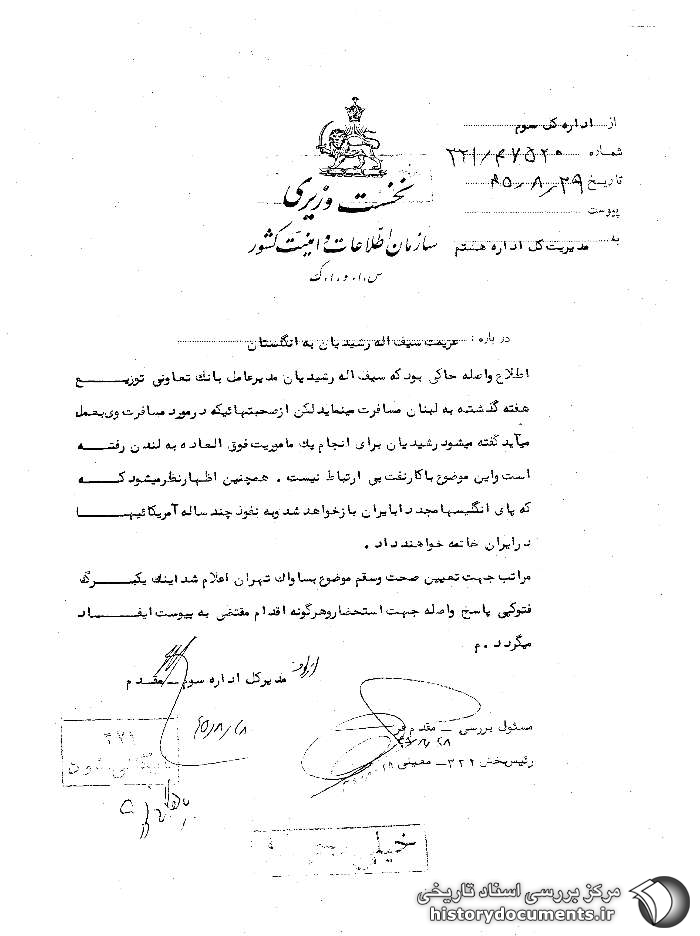 از اداره کل سوم
شماره ۳۲۱/۴۷۵۲۰
تاریخ ۴۵/۸/۲۹
پیوست
به مدیریت کل اداره هشتم
نخست وزیری
سازمان اطلاعات و امنیت کشور
س.ا.و.ا.ک
درباره : عزیمت سیف اله رشیدیان به انگلستان
اطلاع واصله حاکی بود که سیف اله رشیدیان مدیرعامل بانک تعاونی توزیع
هفته گذشته به لبنان مسافرت مینماید لکن از صحبتهائیکه در مورد مسافرت وی بعمل
میآید گفته میشود رشیدیان برای انجام یک ماموریت فوق العاده به لندن رفته
است و این موضوع با کار نفت بی ارتباط نیست . همچنین اظهار نظر میشود که
که پای انگلیسها مجددا بایران باز خواهد شد و به نفوذ چند ساله آمریکائیها
در ایران خاتمه خواهند داد .
مراتب جهت تعیین صحت وسقم موضوع بساواک تهران اعلام شد اینک یکبرگ
فتوکپی پاسخ واصله جهت استحضار و هرگونه اقدام مقتضی به پیوست ایفاد
میگردد . م
مدیر کل اداره سوم – مقدم
۴۵/۸/۲۸
مسئول بررسی – مقدم فر
رئیس بخش ۳۲۱ – معینی
۳۲۱
بایگانی شود
خیلی
مرکز بررسی اسناد تاریخی
historydocuments.ir